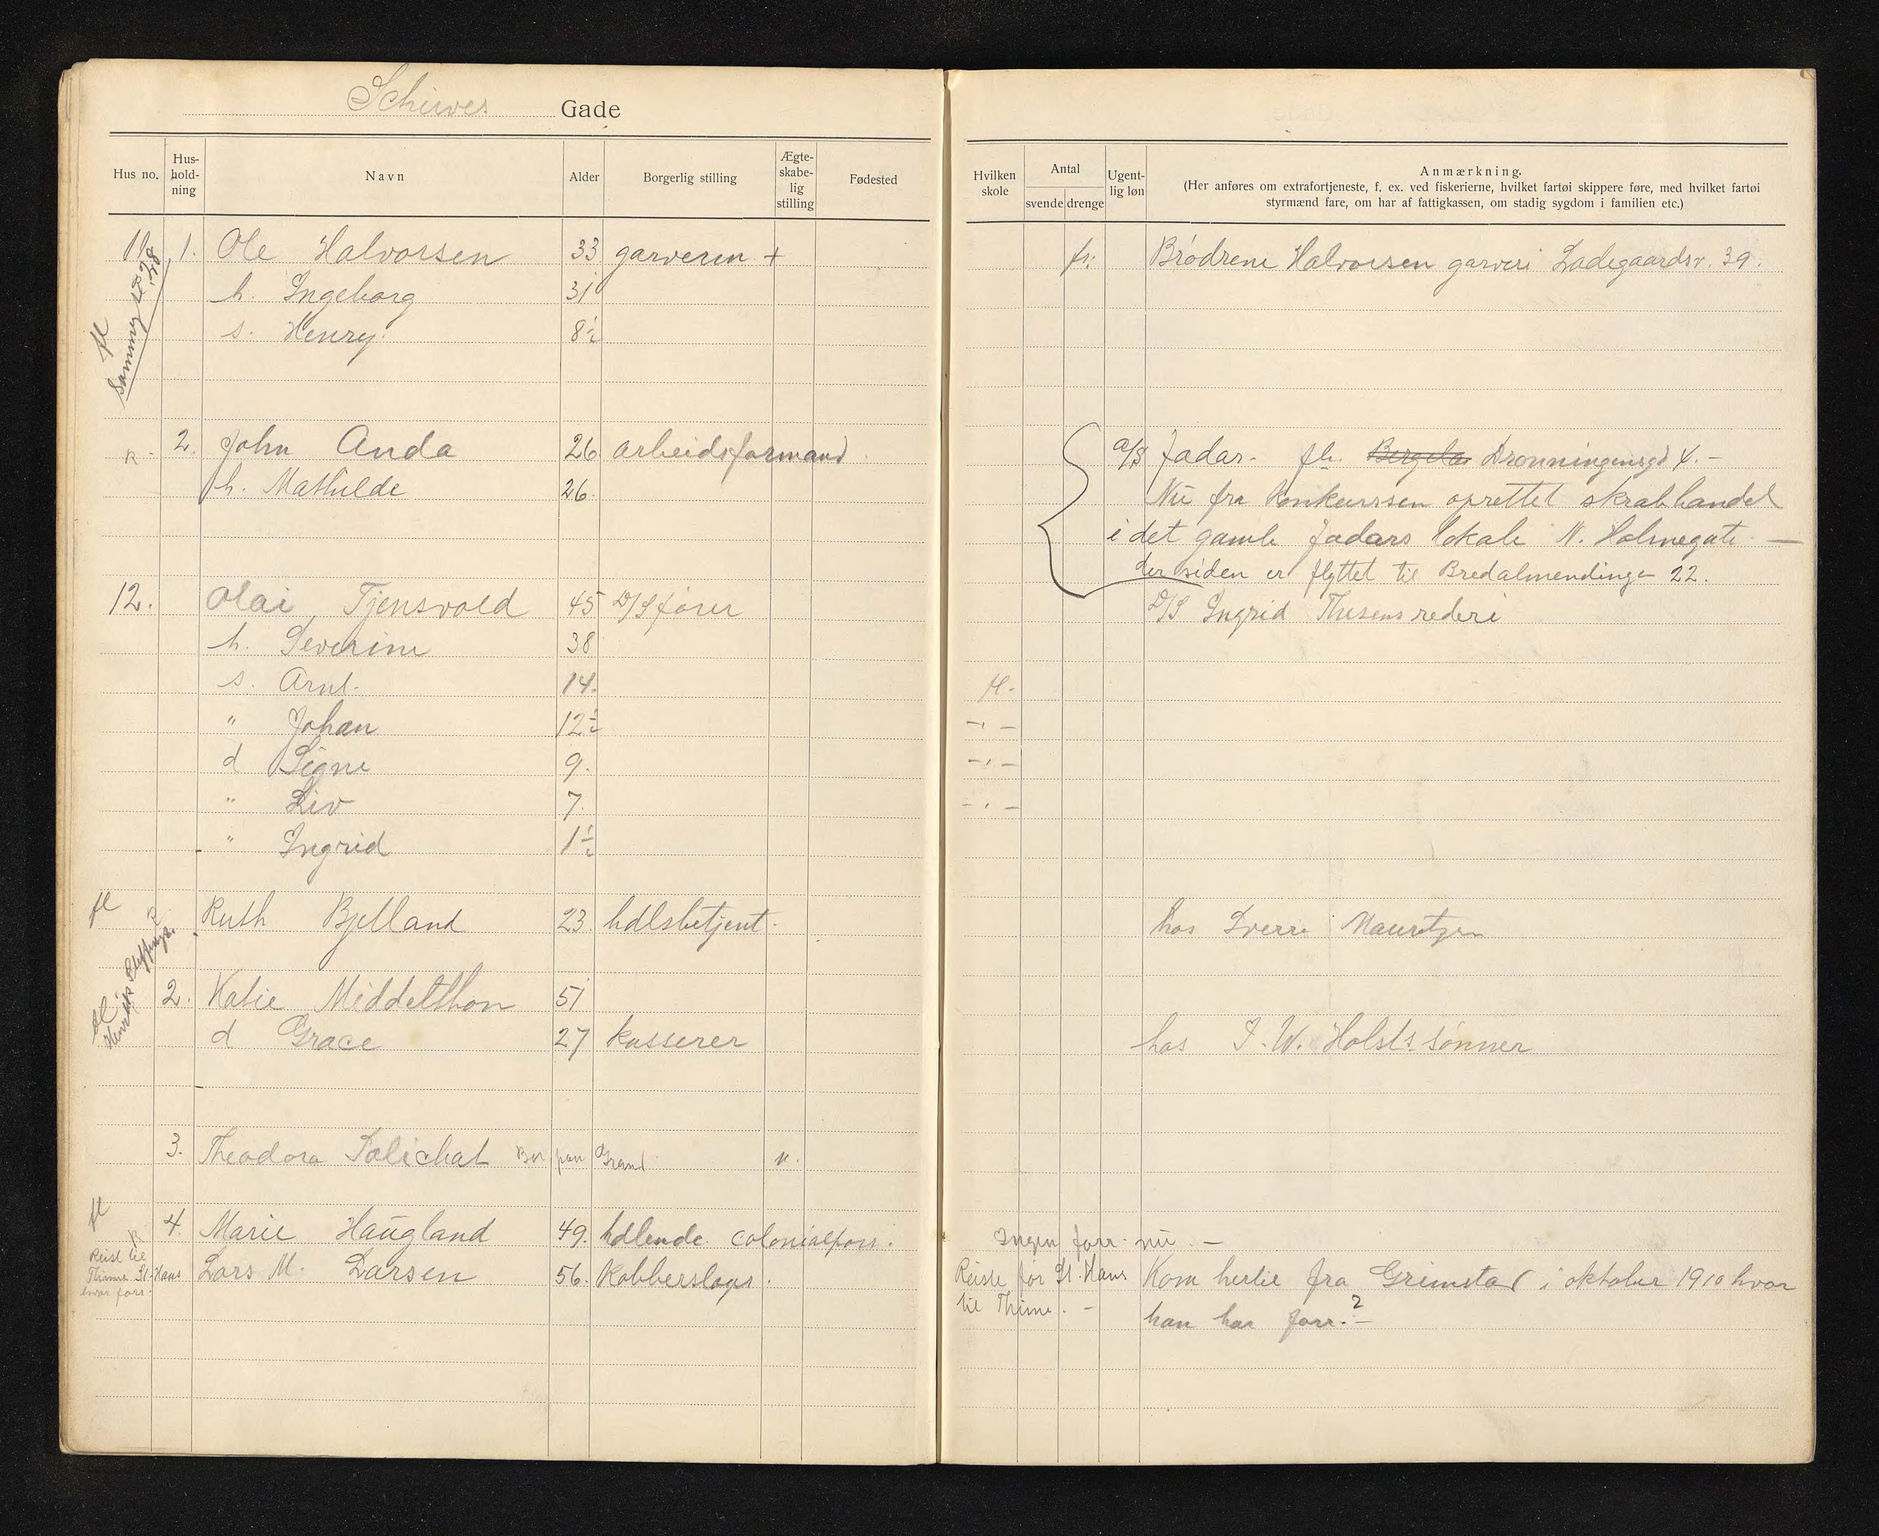 Schiwes Gade
Hus no. Hus-hold-ning Navn Alder Borgerlig stilling Ægte-skabe-lig stilling Fødested
Hvilken skole Antal svende drenge Ugent-lig løn Anmærkning.
(Her anføres om extrafortjeneste, f. ex. ved fiskerierne, hvilket fartøi skippere føre, med hvilket fartøi
styrmænd fare, om har af fattigkassen, om stadig sygdom i familien etc.)
11 1. Ole Halvorsen 33 garverim + fr: Brødrene Halvorsen garveri Ladegaardsv. 39.
h. Ingeborg 31
s. Henry. 8½
fl
R. 2. John Anda 26 arbeidsformand a/s Jadar. fh. Bergela Dronningensgd 4.-
h. Mathilde 26. Nu fra konkurssen oprettet skrabhandel
i det gamle Jadars lokale N. Holmegate. —
der siden er flyttet til Bredalmendinge 22.
12. Olai Tjensvold 45 D/S fører D/S Ingrid Thesens rederi
h. Severine 38
s. Arnt. 14. fl.
" Johan 12½ -"-
d Signe 9. -"-
" Liv 7. -"-
" Ingrid 1½
fl Ruth Bjelland 23. hdlsbetjent. hos Sverre Mauritzen
fl 2. Katie Middelthon 51
d Grace 27 kasserer hos I. W. Holsts sønner
3. Theodora Salichat Bor paa Grand
fl 4. Marie Haugland 49. hdlende colonialforr. Ingen forr. nu. —
Reist til Thime St. Hans hvor forr.
Lars M. Larsen 56. Kobberslager. Reiste før St. Hans til Thime. — Kom hertil fra Grimstad i oktober 1910 hvor
han har forr.? —